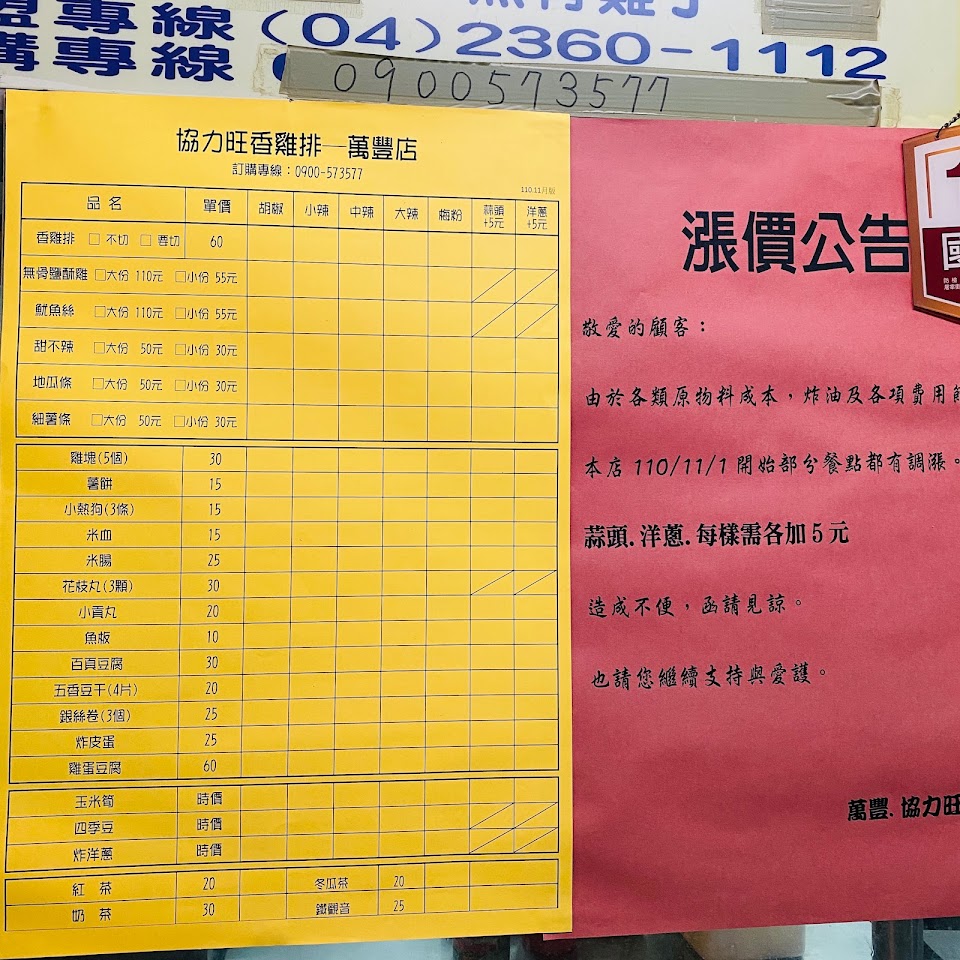 盟專線(04)2360-1112
購專線
0900573577
協力旺香雞排—萬豐店
訂購專線：0900-573577
110.11月版
品名 單價 胡椒 小辣 中辣 大辣 梅粉 蒜頭+5元 洋蔥+5元
香雞排 □ 不切 □ 要切 60
無骨鹽酥雞 □大份 110元 □小份 55元
魷魚絲 □大份 110元 □小份 55元
甜不辣 □大份 50元 □小份 30元
地瓜條 □大份 50元 □小份 30元
細薯條 □大份 50元 □小份 30元
雞塊(5個) 30
薯餅 15
小熱狗(3條) 15
米血 15
米腸 25
花枝丸(3顆) 30
小貢丸 20
魚板 10
百頁豆腐 30
五香豆干(4片) 20
銀絲卷(3個) 25
炸皮蛋 25
雞蛋豆腐 60
玉米筍 時價
四季豆 時價
炸洋蔥 時價
紅茶 20 冬瓜茶 20
奶茶 30 鐵觀音 25
漲價公告
敬愛的顧客：
由於各類原物料成本，炸油及各項費用
本店 110/11/1 開始部分餐點都有調漲。
蒜頭.洋蔥.每樣需各加5元
造成不便，函請見諒。
也請您繼續支持與愛護。
萬豐.協力旺